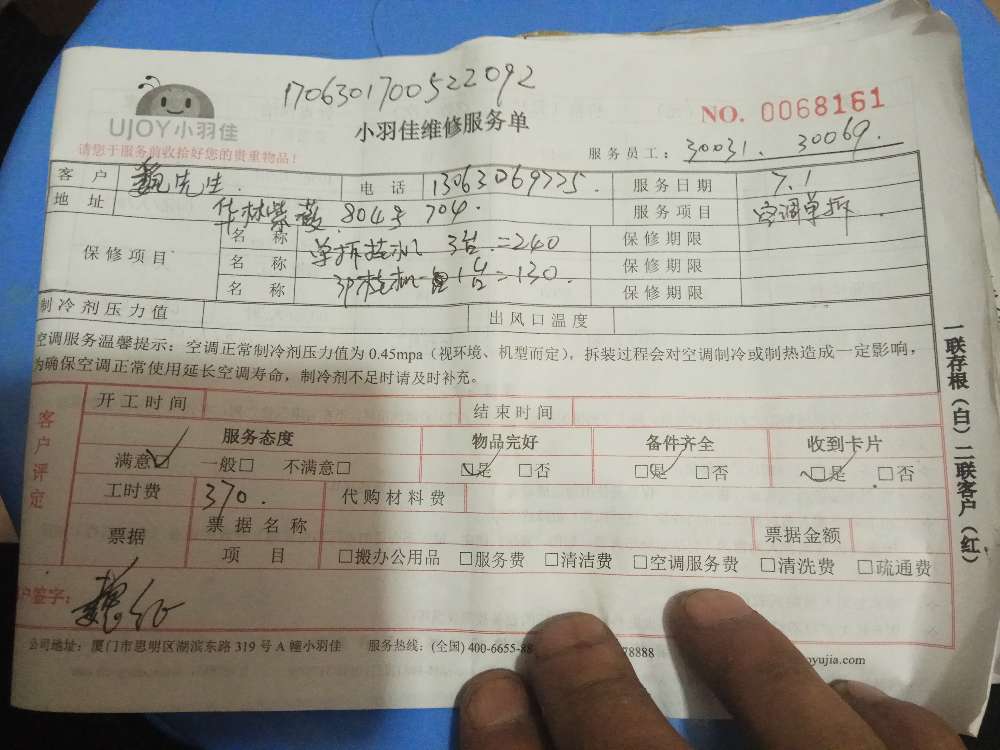 1706301700522092
NO. 0068161
UJOY小羽佳
小羽佳维修服务单
请您于服务前收拾好您的贵重物品！
服务员工：30031. 30069.
客 户 魏先生. 电 话 13063069775. 服务日期 7.1
地 址 华林紫薇 804号 704. 服务项目 空调单拆
保修项目 名 称 单拆挂机 3台=240 保修期限
名 称 3P柜机 1台=130. 保修期限
名 称 保修期限
制冷剂压力值 出风口温度
空调服务温馨提示：空调正常制冷剂压力值为 0.45mpa（视环境、机型而定），拆装过程会对空调制冷或制热造成一定影响，
为确保空调正常使用延长空调寿命，制冷剂不足时请及时补充。
客户评定
开工时间 结束时间
服务态度 物品完好 备件齐全 收到卡片
满意☑ 一般□ 不满意□ ☑是 □否 ☑是 □否 ☑是 □否
工时费 370. 代购材料费
票据 票据名称 票据金额
项 目 □搬办公用品 □服务费 □清洁费 □空调服务费 □清洗费 □疏通费
户签字：魏
公司地址：厦门市思明区湖滨东路 319 号 A 幢小羽佳 服务热线：(全国) 400-6655-88 78888 oyujia.com
一联存根（白）二联客户（红）